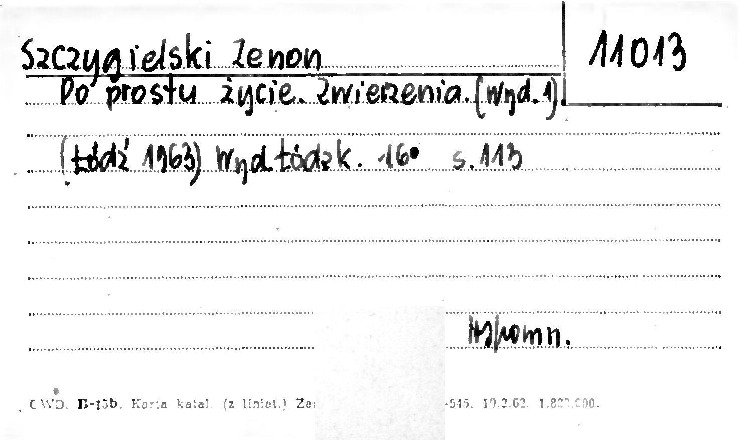 Szczygielski Zenon 11013
Do prostu życie. Zwierzenia. (Wyd. 1)
(Łódź 1963) Wyd. Łódzk. 16° s. 113
Wspomn.
CWD. B-13b. Karta katal. (z liniat.) -545. 19.2.62.